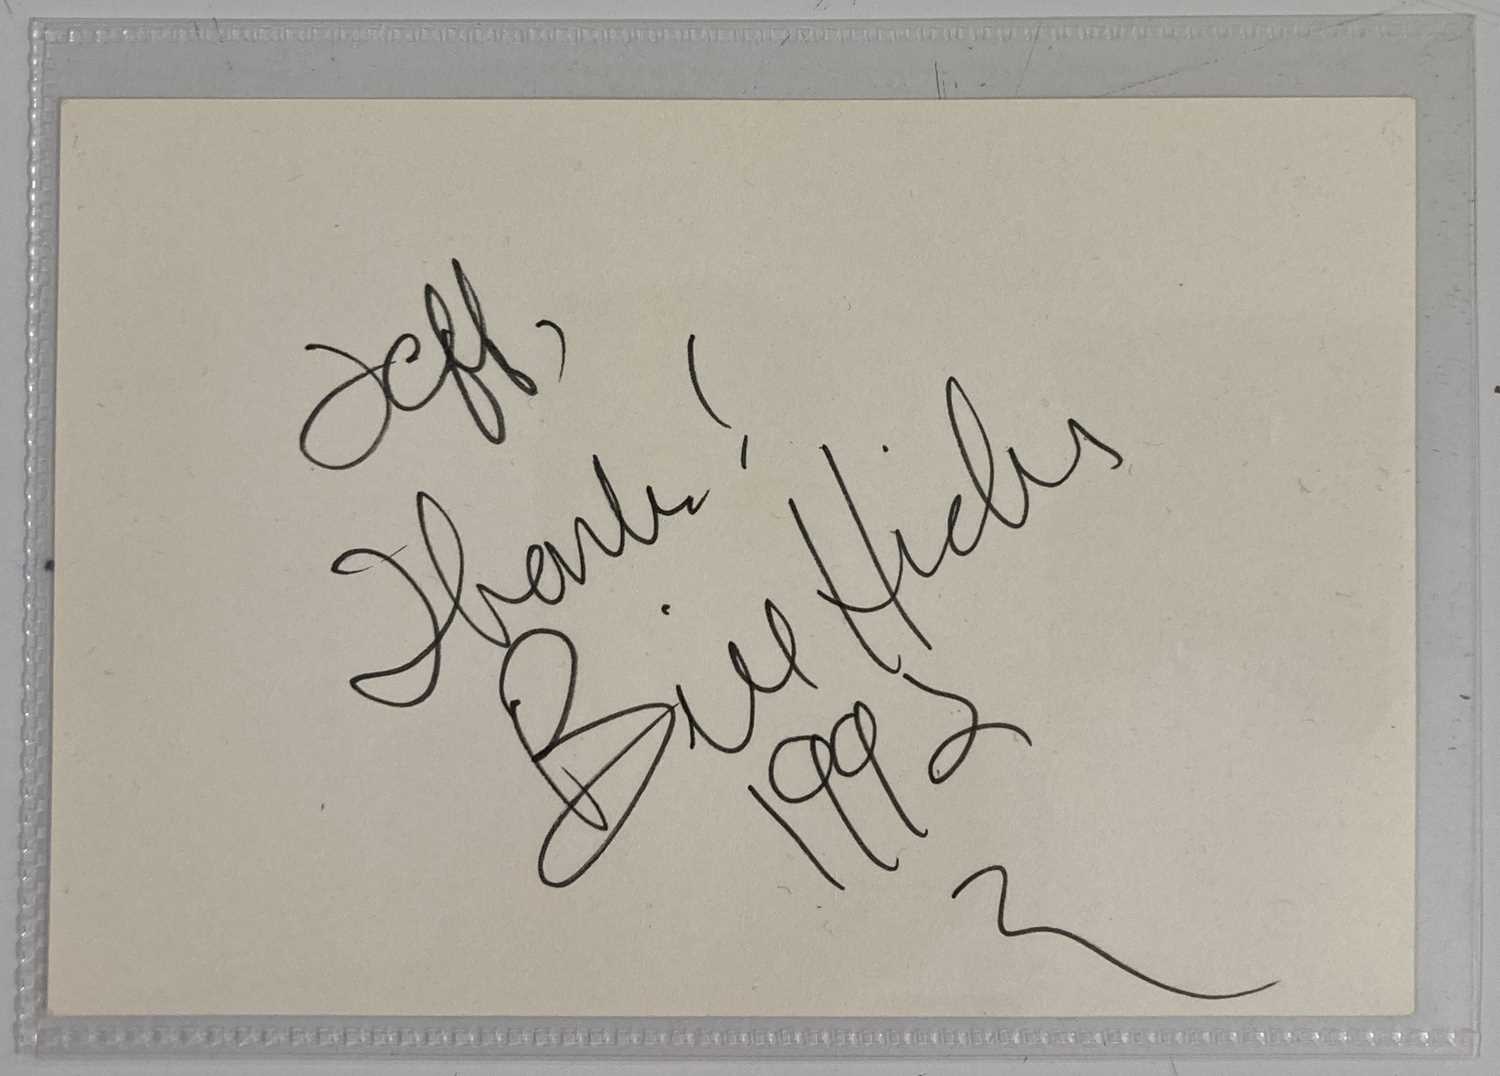 Jeff,
Thanks!
Bill Hicks
1992